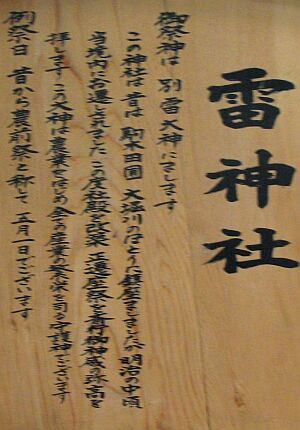 雷神社
御祭神は 別雷大神にまします
この神社は昔は 駒木田圃 大堀川のほとりに鎮座ましましたが明治の中頃
当境内にお遷されました この度社殿を改築 正遷座祭を斎行御神威の弥高を
拝します この大神は農業をはじめ全ての産業の繁栄を司る守護神でございます
例祭日 昔から農前祭と称して 五月一日でございます